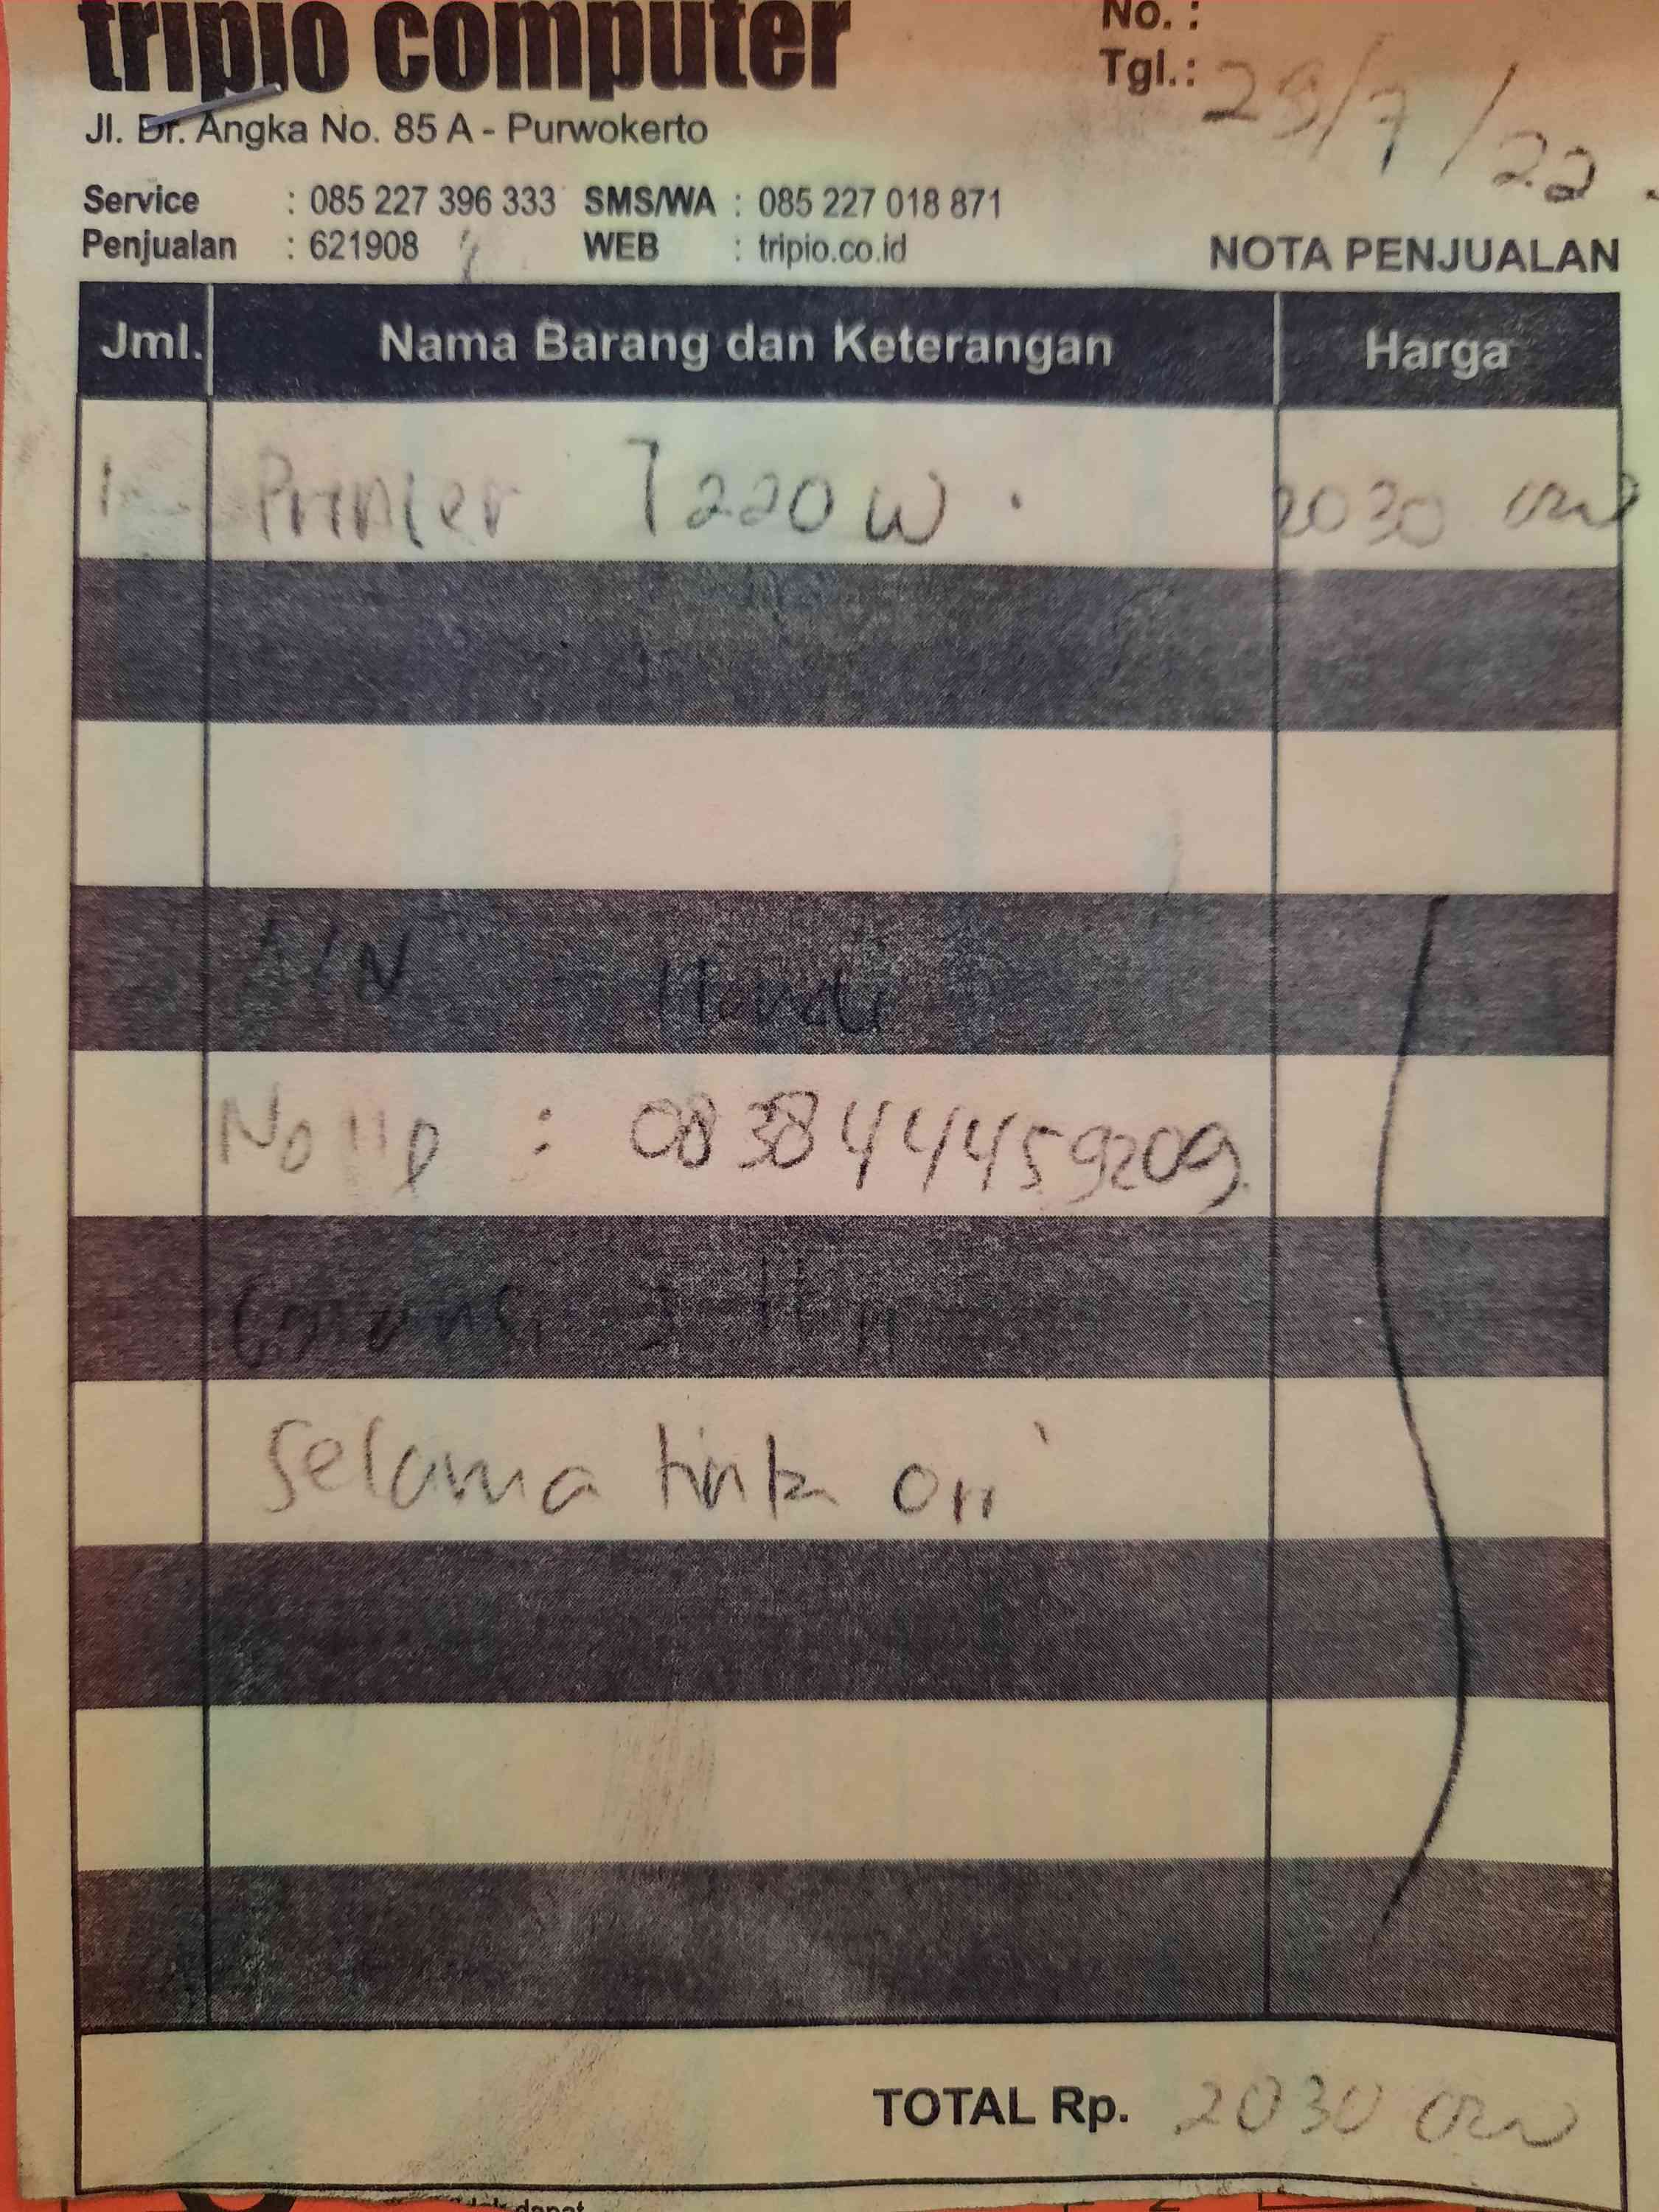 tripio computer
No. :
Tgl.: 29/7/22
Jl. Dr. Angka No. 85 A - Purwokerto
Service : 085 227 396 333 SMS/WA : 085 227 018 871
Penjualan : 621908 WEB : tripio.co.id
NOTA PENJUALAN
Jml. Nama Barang dan Keterangan Harga
1 Printer T220W. 2030 000
A/N
No Hp : 083844459209
Garansi thn
Selama tinta ori
TOTAL Rp. 2030 000
dapat